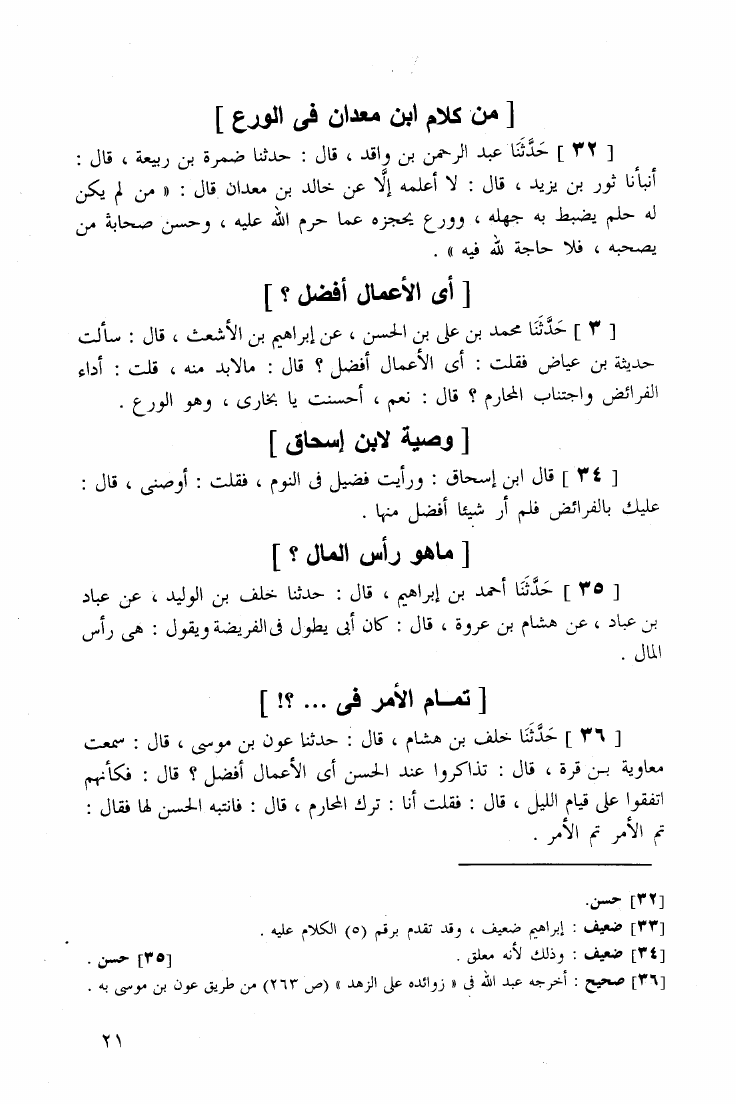 [ من كلام ابن معدان فى الورع ]
[ ٣٢ ] حَدَّثَنَا عبد الرحمن بن واقد ، قال : حدثنا ضمرة بن ربيعة ، قال :
أنبأنا ثور بن يزيد ، قال : لا أعلمه إلَّا عن خالد بن معدان قال : « من لم يكن
له حلم يضبط به جهله ، وورع يحجزه عما حرم الله عليه ، وحسن صحابة من
يصحبه ، فلا حاجة لله فيه » .
[ أى الأعمال أفضل ؟ ]
[ ٣ ] حَدَّثَنَا محمد بن على بن الحسن ، عن إبراهيم بن الأشعث ، قال : سألت
حديثة بن عياض فقلت : أى الأعمال أفضل ؟ قال : مالابد منه ، قلت : أداء
الفرائض واجتناب المحارم ؟ قال : نعم ، أحسنت يا بخارى ، وهو الورع .
[ وصية لابن إسحاق ]
[ ٣٤ ] قال ابن إسحاق : ورأيت فضيل فى النوم ، فقلت : أوصنى ، قال :
عليك بالفرائض فلم أر شيئا أفضل منها .
[ ماهو رأس المال ؟ ]
[ ٣٥ ] حَدَّثَنَا أحمد بن إبراهيم ، قال : حدثنا خلف بن الوليد ، عن عباد
بن عباد ، عن هشام بن عروة ، قال : كان أبى يطول فى الفريضة ويقول : هى رأس
المال .
[ تمـام الأمر فى ... ؟! ]
[ ٣٦ ] حَدَّثَنَا خلف بن هشام ، قال : حدثنا عون بن موسى ، قال : سمعت
معاوية بـن قرة ، قال : تذاكروا عند الحسن أى الأعمال أفضل ؟ قال : فكأنهم
اتفقوا على قيام الليل ، قال : فقلت أنا : ترك المحارم ، قال : فانتبه الحسن لها فقال :
تم الأمر تم الأمر .
[٣٢] حسن.
[٣٣] ضعيف : إبراهيم ضعيف ، وقد تقدم برقم (٥) الكلام عليه .
[٣٤] ضعيف : وذلك لأنه معلق . [٣٥] حسن .
[٣٦] صحيح : أخرجه عبد الله فى « زوائده على الزهد » (ص ٢٦٣) من طريق عون بن موسى به .
٢١